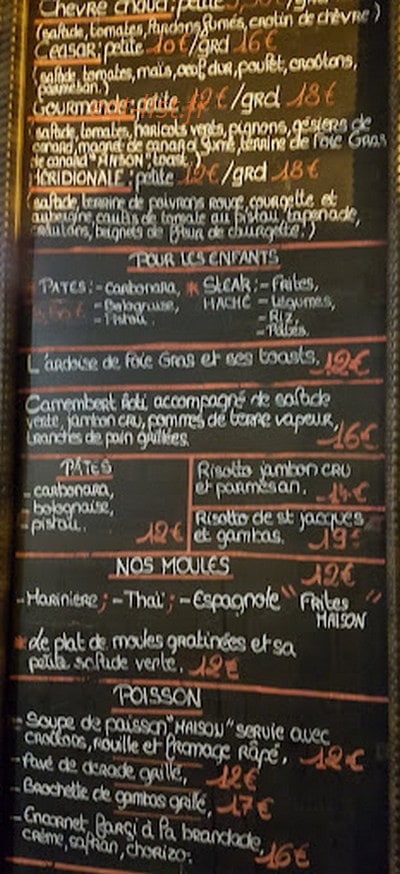 Chèvre chaud: petite 9,50€/grd
(salade, tomates, lardons fumés, crotin de chèvre)
Ceasar: petite 10€/grd 16€
(salade, tomates, maïs, œuf dur, poulet, croûtons,
parmesan.)
Gourmande: petite 12€/grd 18€
(salade, tomates, haricots verts, pignons, gésiers de
canard, magret de canard fumé, terrine de Foie Gras
de canard "MAISON" toast.)
MERIDIONALE: petite 12€/grd 18€
(salade, terrine de poivrons rouge, courgette et
aubergine, caulis de tomate au pistou, tapenade,
croûtons, beignets de fleur de courgette.)
POUR LES ENFANTS
PATES: - Carbonara, * STEAK: - Frites,
- Bolognaise, HACHÉ - Légumes,
- Pistou. - Riz,
- Pâtes.
L'ardoise de Foie Gras et ses toasts. 12€
Camembert Rôti, accompagné de salade
verte, jambon cru, pommes de terre vapeur,
tranches de pain grillées. 16€
PÂTES
- carbonara,
- bolognaise,
- pistou. 12€
Risotto jambon cru
et parmesan. 14€
Risotto de st jacques
et gambas. 19€
NOS MOULES 12€
- Marinière; - Thaï; - Espagnole "Frites
MAISON"
* Le plat de moules gratinées et sa
petite salade verte. 12€
POISSON
- Soupe de poisson "MAISON" servie avec
croûtons, rouille et fromage râpé. 12€
- Pavé de dorade grillé, 12€
- Brochette de gambas grillé, 17€
- Encornet Farçi à la brandade,
crème, safran, chorizo. 16€